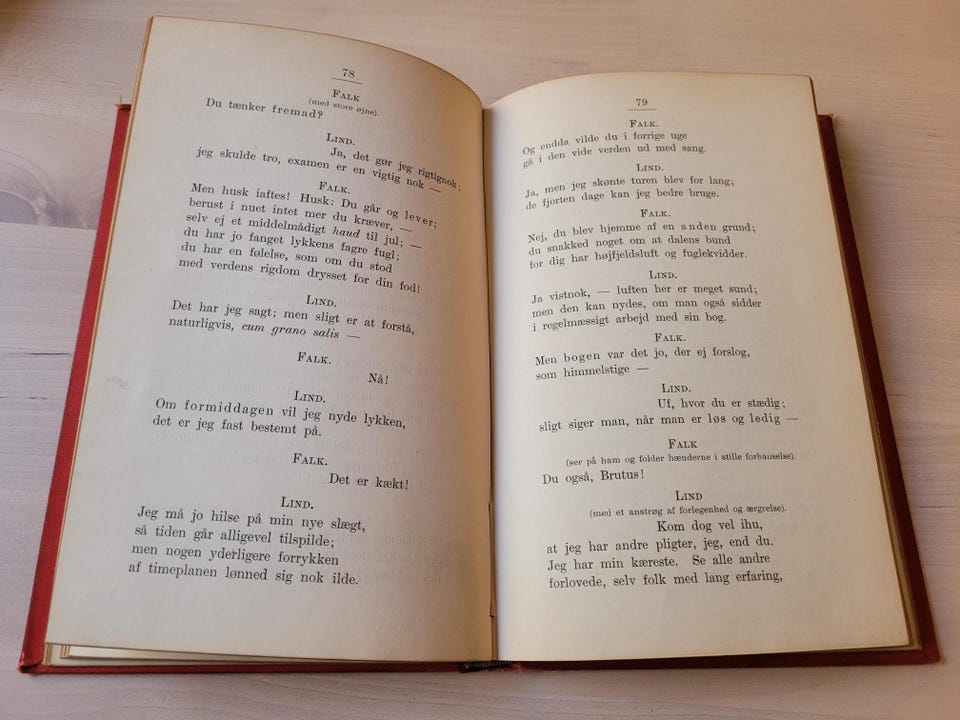 78
FALK
(med store øjne).
Du tænker fremad?
LIND.
Ja, det gør jeg rigtignok;
jeg skulde tro, examen er en vigtig nok —
FALK.
Men husk iaftes! Husk: Du går og lever;
berust i nuet intet mer du kræver, —
selv ej et middelmådigt haud til jul; —
du har jo fanget lykkens fagre fugl;
du har en følelse, som om du stod
med verdens rigdom drysset for din fod!
LIND.
Det har jeg sagt; men sligt er at forstå,
naturligvis, cum grano salis —
FALK.
Nå!
LIND.
Om formiddagen vil jeg nyde lykken,
det er jeg fast bestemt på.
FALK.
Det er kækt!
LIND.
Jeg må jo hilse på min nye slægt,
så tiden går alligevel tilspilde;
men nogen yderligere forrykken
af timeplanen lønned sig nok ilde.
79
FALK.
Og endda vilde du i forrige uge
gå i den vide verden ud med sang.
LIND.
Ja, men jeg skønte turen blev for lang;
de fjorten dage kan jeg bedre bruge.
FALK.
Nej, du blev hjemme af en anden grund;
du snakked noget om at dalens bund
for dig har højfjeldsluft og fuglekvidder.
LIND.
Ja vistnok, — luften her er meget sund;
men den kan nydes, om man også sidder
i regelmæssigt arbejd med sin bog.
FALK.
Men bogen var det jo, der ej forslog,
som himmelstige —
LIND.
Uf, hvor du er stædig;
sligt siger man, når man er løs og ledig —
FALK
(ser på ham og folder hænderne i stille forbauselse).
Du også, Brutus!
LIND
(med et anstrøg af forlegenhed og ærgrelse).
Kom dog vel ihu,
at jeg har andre pligter, jeg, end du.
Jeg har min kæreste. Se alle andre
forlovede, selv folk med lang erfaring,